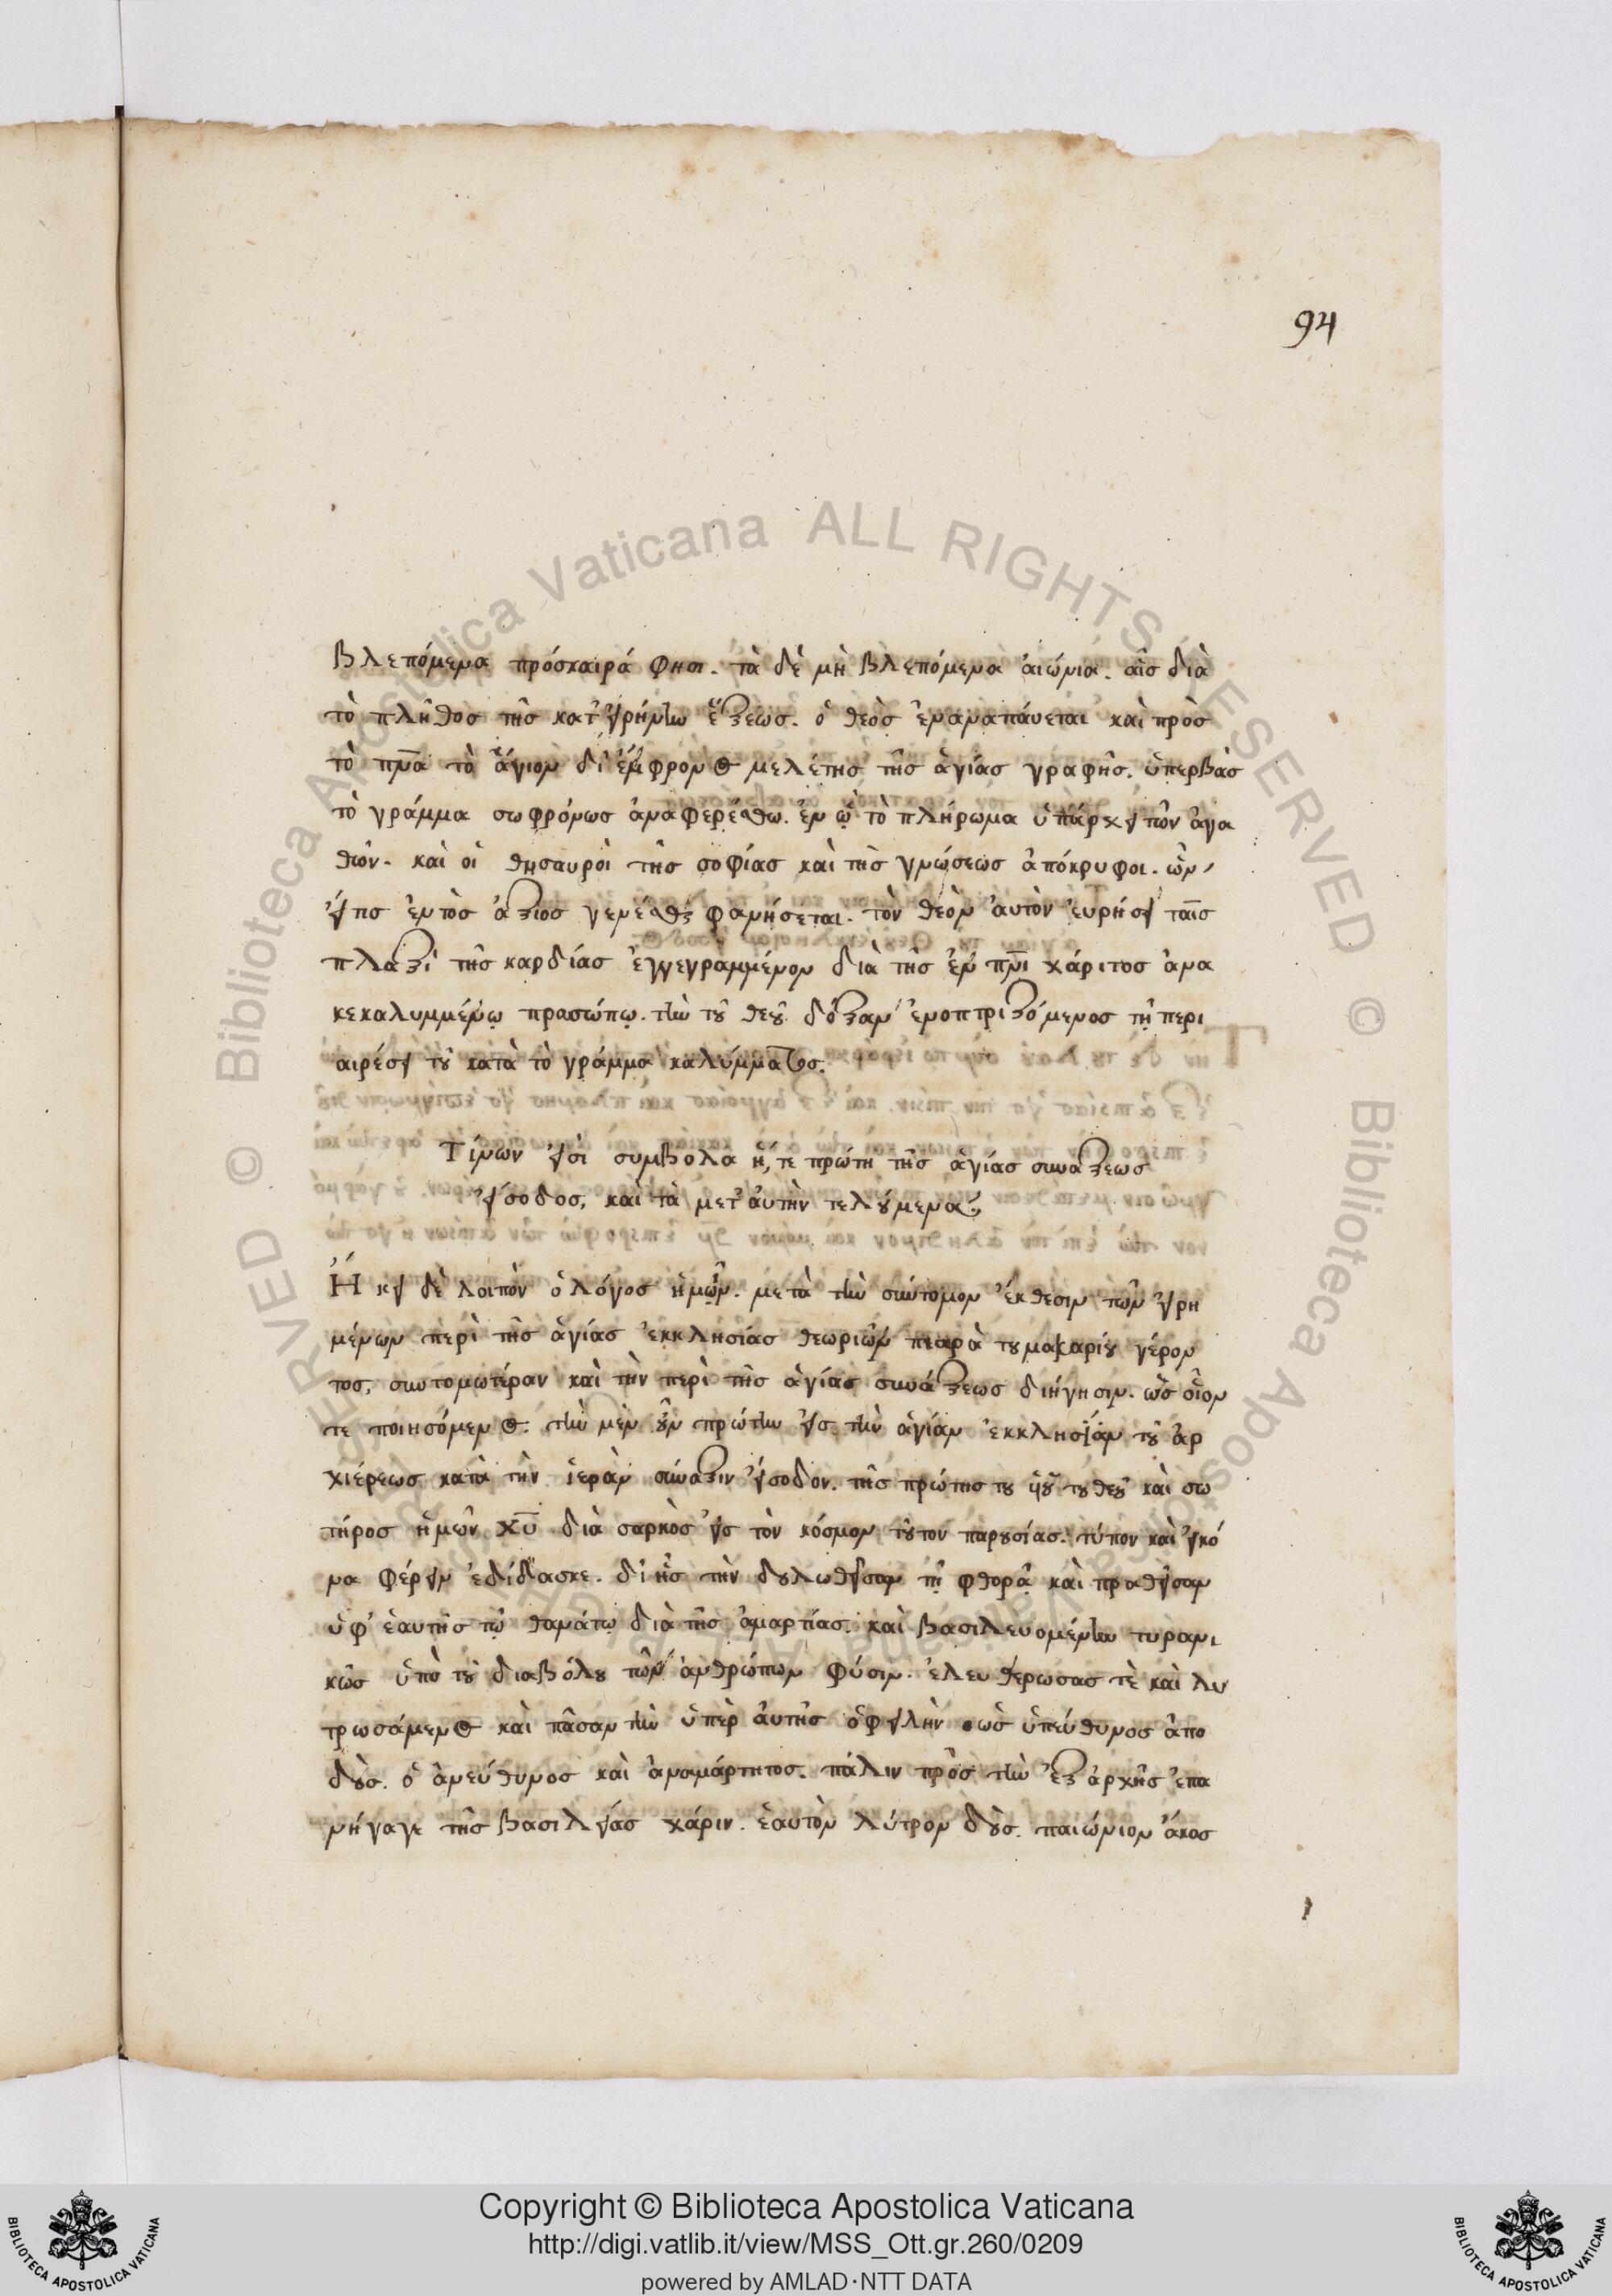 94
βλεπόμενα πρόσκαιρά φησι. τὰ δὲ μὴ βλεπόμενα αἰώνια. αἷς διὰ
τὸ πλῆθος τῆς κατ' εἰρήνην ἕξεως. ὁ θεὸς ἐναναπάυεται καὶ πρὸς
τὸ πνα τὸ ἅγιον δι' ἔμφρονος μελέτης τῆς ἁγίας γραφῆς. ὑπερβὰς
τὸ γράμμα σωφρόνως ἀναφερέσθω. ἐν ᾧ τὸ πλήρωμα ὑπάρχει τῶν ἀγα
θῶν. καὶ οἱ θησαυροὶ τῆς σοφίας καὶ τῆς γνώσεως ἀπόκρυφοι. ὧν
εἴ τις ἐντὸς ἄξιος γενέσθαι φανήσεται. τὸν θεὸν ἀυτὸν ἑυρήσει ταῖς
πλαξὶ τῆς καρδίας ἐγγεγραμμένον διὰ τῆς ἐν πνι χάριτος ἀνα
κεκαλυμμένῳ πρασώπῳ. τὴν τοῦ θεοῦ δόξαν ἐνοπτριζόμενος τῇ περι
αιρέσει τοῦ κατὰ τὸ γράμμα καλύμματος.
Τίνων εἰσὶ συμβολα ἥ, τε πρώτη τῆς ἁγίας συνάξεως
εἴσοδος, καὶ τὰ μετ' ἀυτὴν τελούμενα
Ἥκει δὲ λοιπὸν ὁ λόγος ἡμῶν. μετὰ τὴν σύντομον ἔκθεσιν τῶν εἰρη
μένων περὶ τῆς ἁγίας ἐκκλησίας θεωριῶν παρὰ του μακαρίου γέρον
τος, συντομωτέραν καὶ τὴν περὶ τῆς ἁγίας συνάξεως διήγησιν. ὡς οἷον
τε ποιησόμενος. τὴν μὲν οὖν πρώτην εἰς τὴν ἁγίαν ἐκκλησίαν τοῦ ἀρ
χιέρεως κατὰ τὴν ἱερὰν σύναξιν εἴσοδον. τῆς πρώτης του υἱοῦ του θεοῦ καὶ σω
τήρος ἡμῶν χυ διὰ σαρκὸς εἰς τὸν κόσμον τοῦτον παρουσίας. τύπον καὶ εἰκό
να φέρειν ἐδίδασκε. δι' ἧς τὴν δουλωθεῖσαν τῇ φθορᾷ καὶ πραθεῖσαν
ὑφ' ἑαυτῆς τῷ θανάτῳ διὰ τῆς ἁμαρτίας. καὶ βασιλευομένην τυρανι
κῶς ὑπὸ τοῦ διαβόλου τῶν ἀνθρώπων φύσιν. ἐλευθέρωσας τὲ καὶ λυ
τρωσάμενος καὶ πᾶσαν τὴν ὑπὲρ ἀυτῆς ὀφειλὴν ὡς ὑπεύθυνος ἀπο
δοὺς. ὁ ἀνεύθυνος καὶ ἀναμάρτητος. πάλιν πρὸς τὴν ἐξ ἀρχῆς ἐπα
νήγαγε τῆς βασιλείας χάριν. ἑαυτὸν λύτρον δοὺς. παιώνιον ἄκος
© Biblioteca Apostolica Vaticana ALL RIGHTS RESERVED
Copyright © Biblioteca Apostolica Vaticana
http://digi.vatlib.it/view/MSS_Ott.gr.260/0209
powered by AMLAD·NTT DATA
BIBLIOTECA APOSTOLICA VATICANA
BIBLIOTECA APOSTOLICA VATICANA